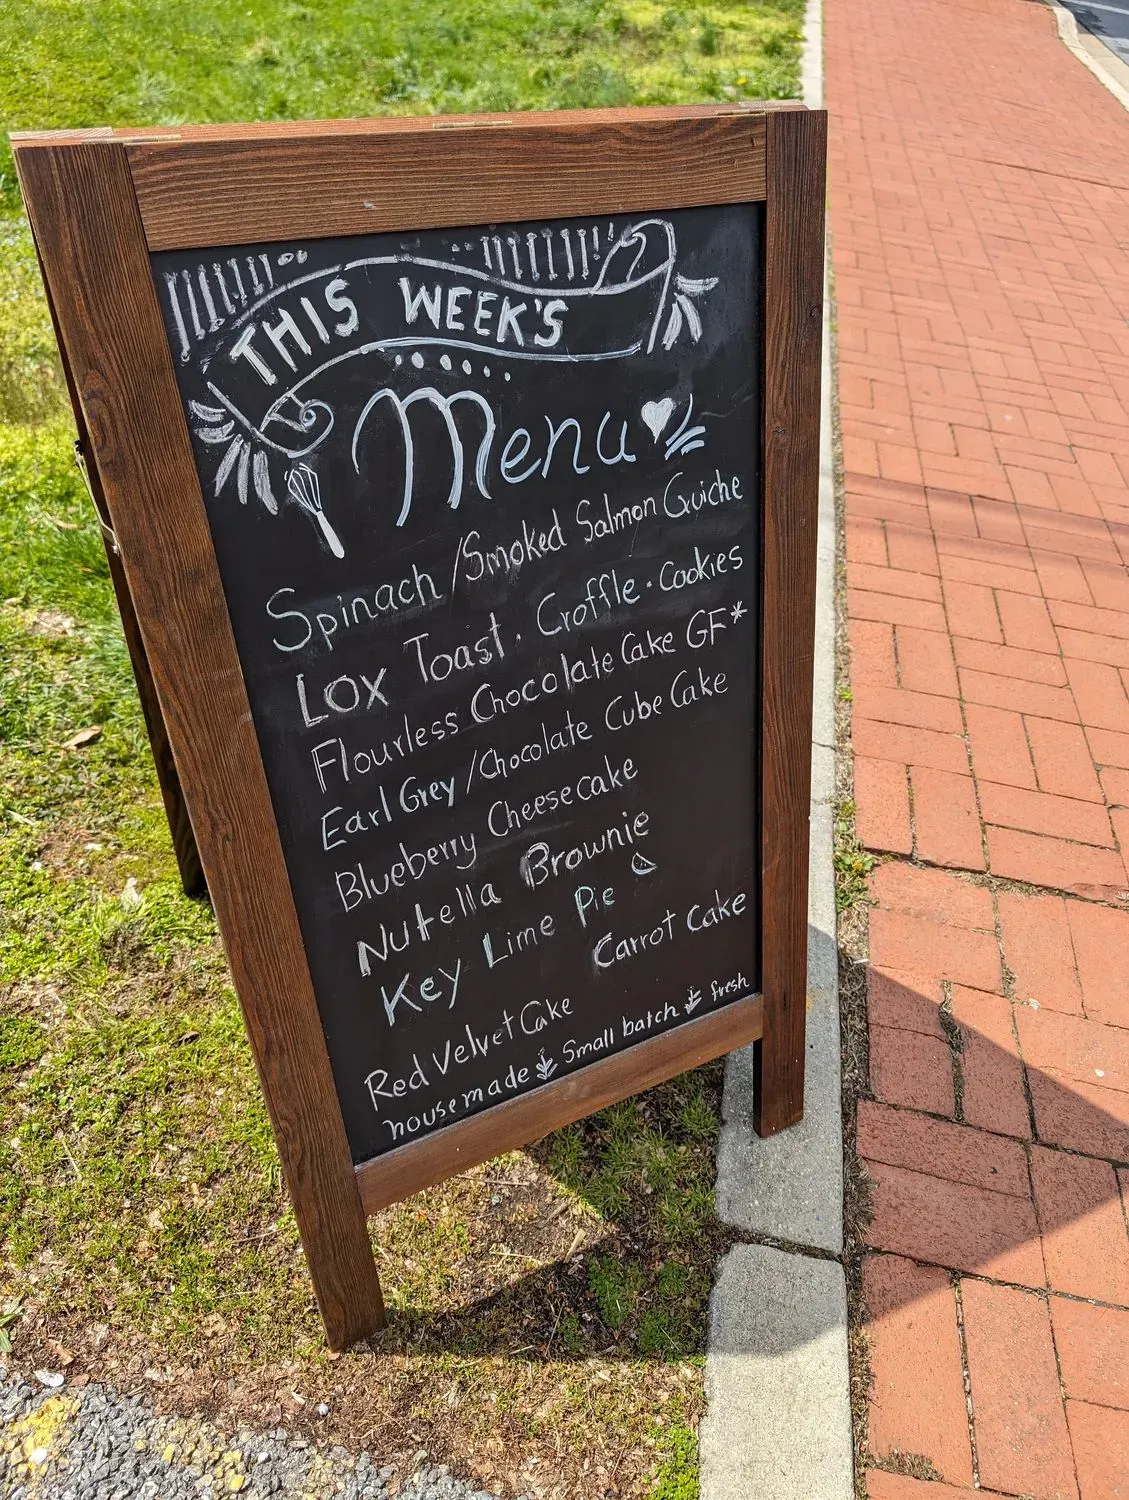 THIS WEEK'S
Menu
Spinach/Smoked Salmon Quiche
Lox Toast · Croffle · Cookies
Flourless Chocolate Cake GF*
Earl Grey/Chocolate Cube Cake
Blueberry Cheesecake
Nutella Brownie
Key Lime Pie
Carrot Cake
Red Velvet Cake
housemade Small batch fresh